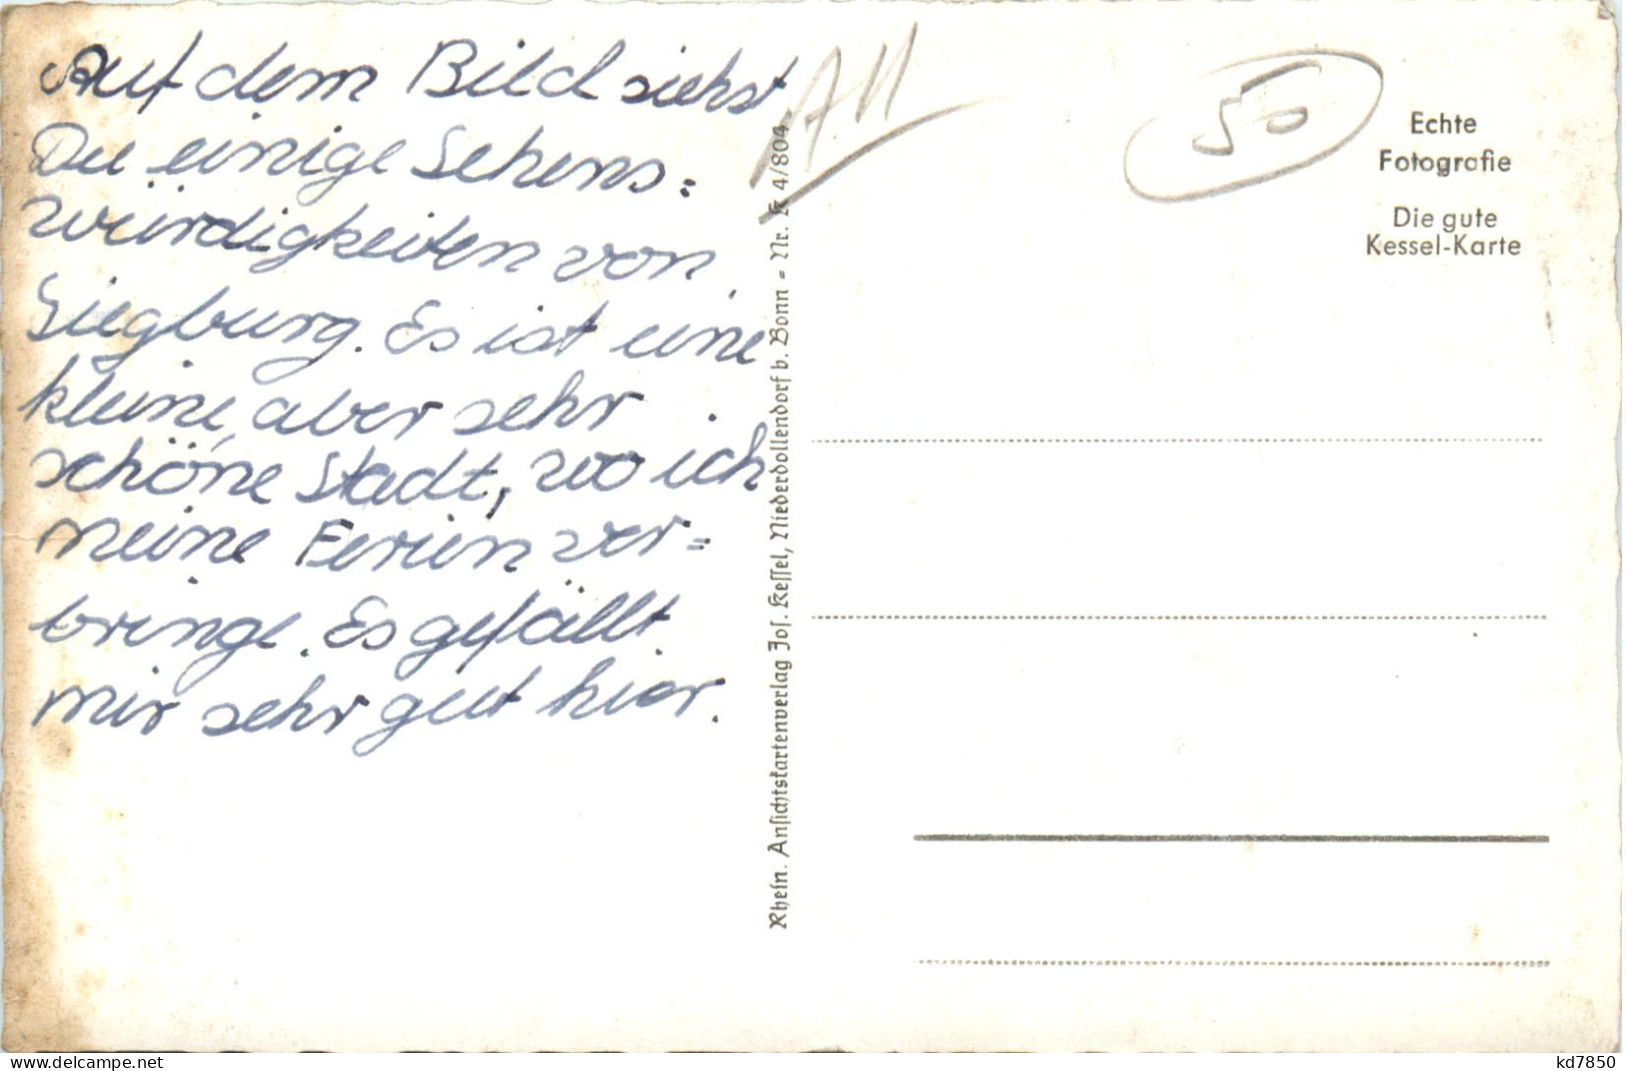 Auf dem Bild siehst
Du einige Sehens=
würdigkeiten von
Siegburg. Es ist eine
kleine, aber sehr
schöne Stadt, wo ich
meine Ferien ver=
bringe. Es gefällt
mir sehr gut hier.
Rhein. Ansichtskartenverlag Jos. Kessel, Niederdollendorf b. Bonn - Nr. K 4/804
50
Echte
Fotografie
Die gute
Kessel-Karte
www.delcampe.net
kd7850